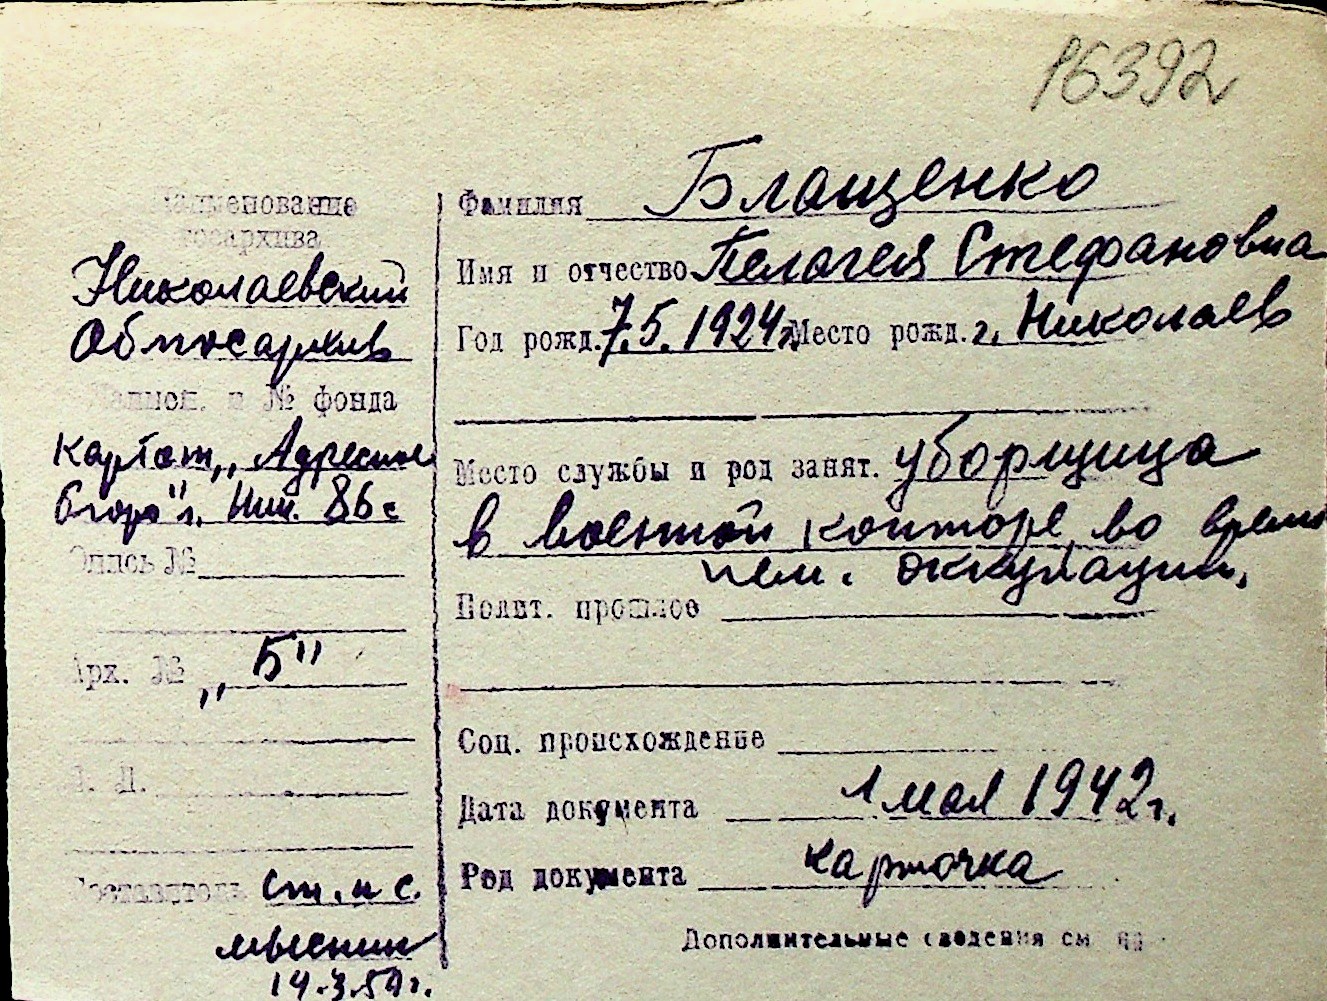 16392
Наименование
госархива
Николаевский
Облгосархив
Наимен. и № фонда
картот. „Адресное
бюро" г. Ник.
Опись №
Арх. № „Б"
Л. Л.
Составитель ст. н с.
14.3.50г.
Фамилия Блащенко
Имя и отчество Пелагея Стефановна
Год рожд. 7.5.1924г. Место рожд. г. Николаев
Место службы и род занят. уборщица
в военной конторе во время
нем. оккупации.
Полит. прошлое
Соц. происхождение
Дата документа 1 мая 1942г.
Род документа карточка
Дополнительные сведения см на